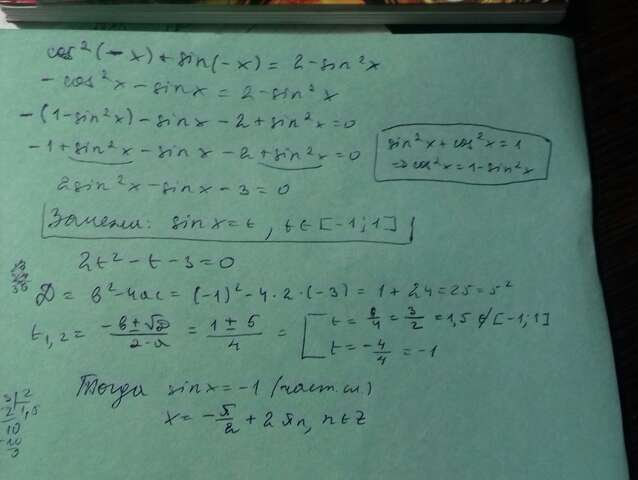 cos²(-x) + sin(-x) = 2 - sin²x
- cos²x - sinx = 2 - sin²x
-(1-sin²x) - sinx - 2 + sin²x = 0
-1 + sin²x - sinx - 2 + sin²x = 0
sin²x + cos²x = 1
⇒ cos²x = 1 - sin²x
2sin²x - sinx - 3 = 0
Замена: sinx = t, t∈[-1;1]
2t² - t - 3 = 0
D = b² - 4ac = (-1)² - 4·2·(-3) = 1 + 24 = 25 = 5²
t₁,₂ = (-b ± √D)/(2·a) = (1 ± 5)/4 = [ t = 6/4 = 3/2 = 1,5 ∉ [-1;1]
t = -4/4 = -1
Тогда sinx = -1 (част.сл)
x = -π/2 + 2πn, n∈Z